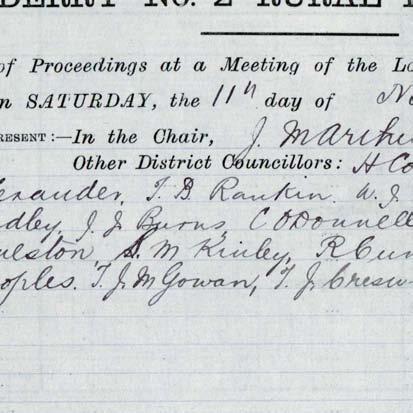 DERRY No. 2 RURAL
of Proceedings at a Meeting of the Lo
n SATURDAY, the 11th day of No
RESENT :—In the Chair, J. McArthu
Other District Councillors: H Co
exander, T. B. Rankin. W. J.
dley, J. J. Burns, C O'Donnell
uleston, S. McKinley, R Cun
oples. T. J. McGowan, T. J. Cresw